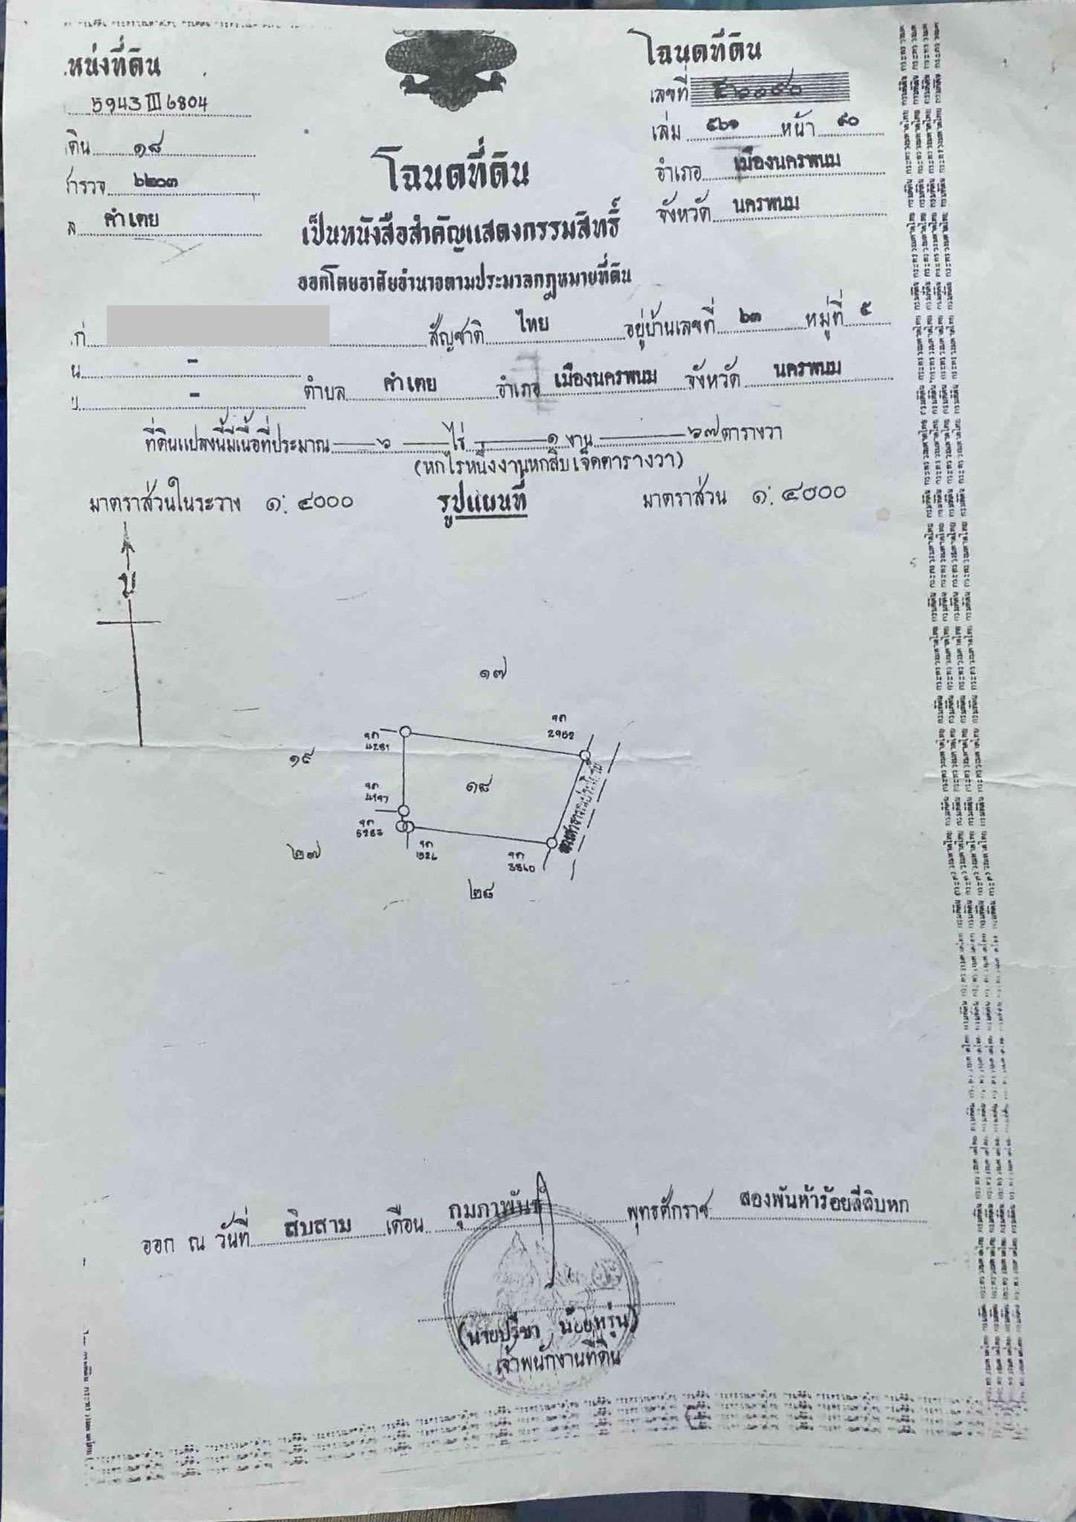 หน่งที่ดิน
5943 III 6804
ดิน ๑๘
สำรวจ ๖๒๐๓
ล คำเตย
โฉนดที่ดิน
เลขที่
เล่ม ๕๖๑ หน้า ๙๐
อำเภอ เมืองนครพนม
จังหวัด นครพนม
โฉนดที่ดิน
เป็นหนังสือสำคัญแสดงกรรมสิทธิ์
ออกโดยอาศัยอำนาจตามประมวลกฎหมายที่ดิน
สัญชาติ ไทย อยู่บ้านเลขที่ ๖๓ หมู่ที่ ๕
น -
- ตำบล คำเตย อำเภอ เมืองนครพนม จังหวัด นครพนม
ที่ดินแปลงนี้มีเนื้อที่ประมาณ ๖ ไร่ ๑ งาน ๖๗ ตารางวา
(หกไร่หนึ่งงานหกสิบเจ็ดตารางวา)
มาตราส่วนในระวาง ๑:๔๐๐๐ รูปแผนที่ มาตราส่วน ๑:๔๐๐๐
น
๑๗
๑๙
๑๘
๒๗
๒๘
ออก ณ วันที่ สิบสาม เดือน กุมภาพันธ์ พุทธศักราช สองพันห้าร้อยสี่สิบหก
(นายปรีชา น้อยหรุ่น)
เจ้าพนักงานที่ดิน